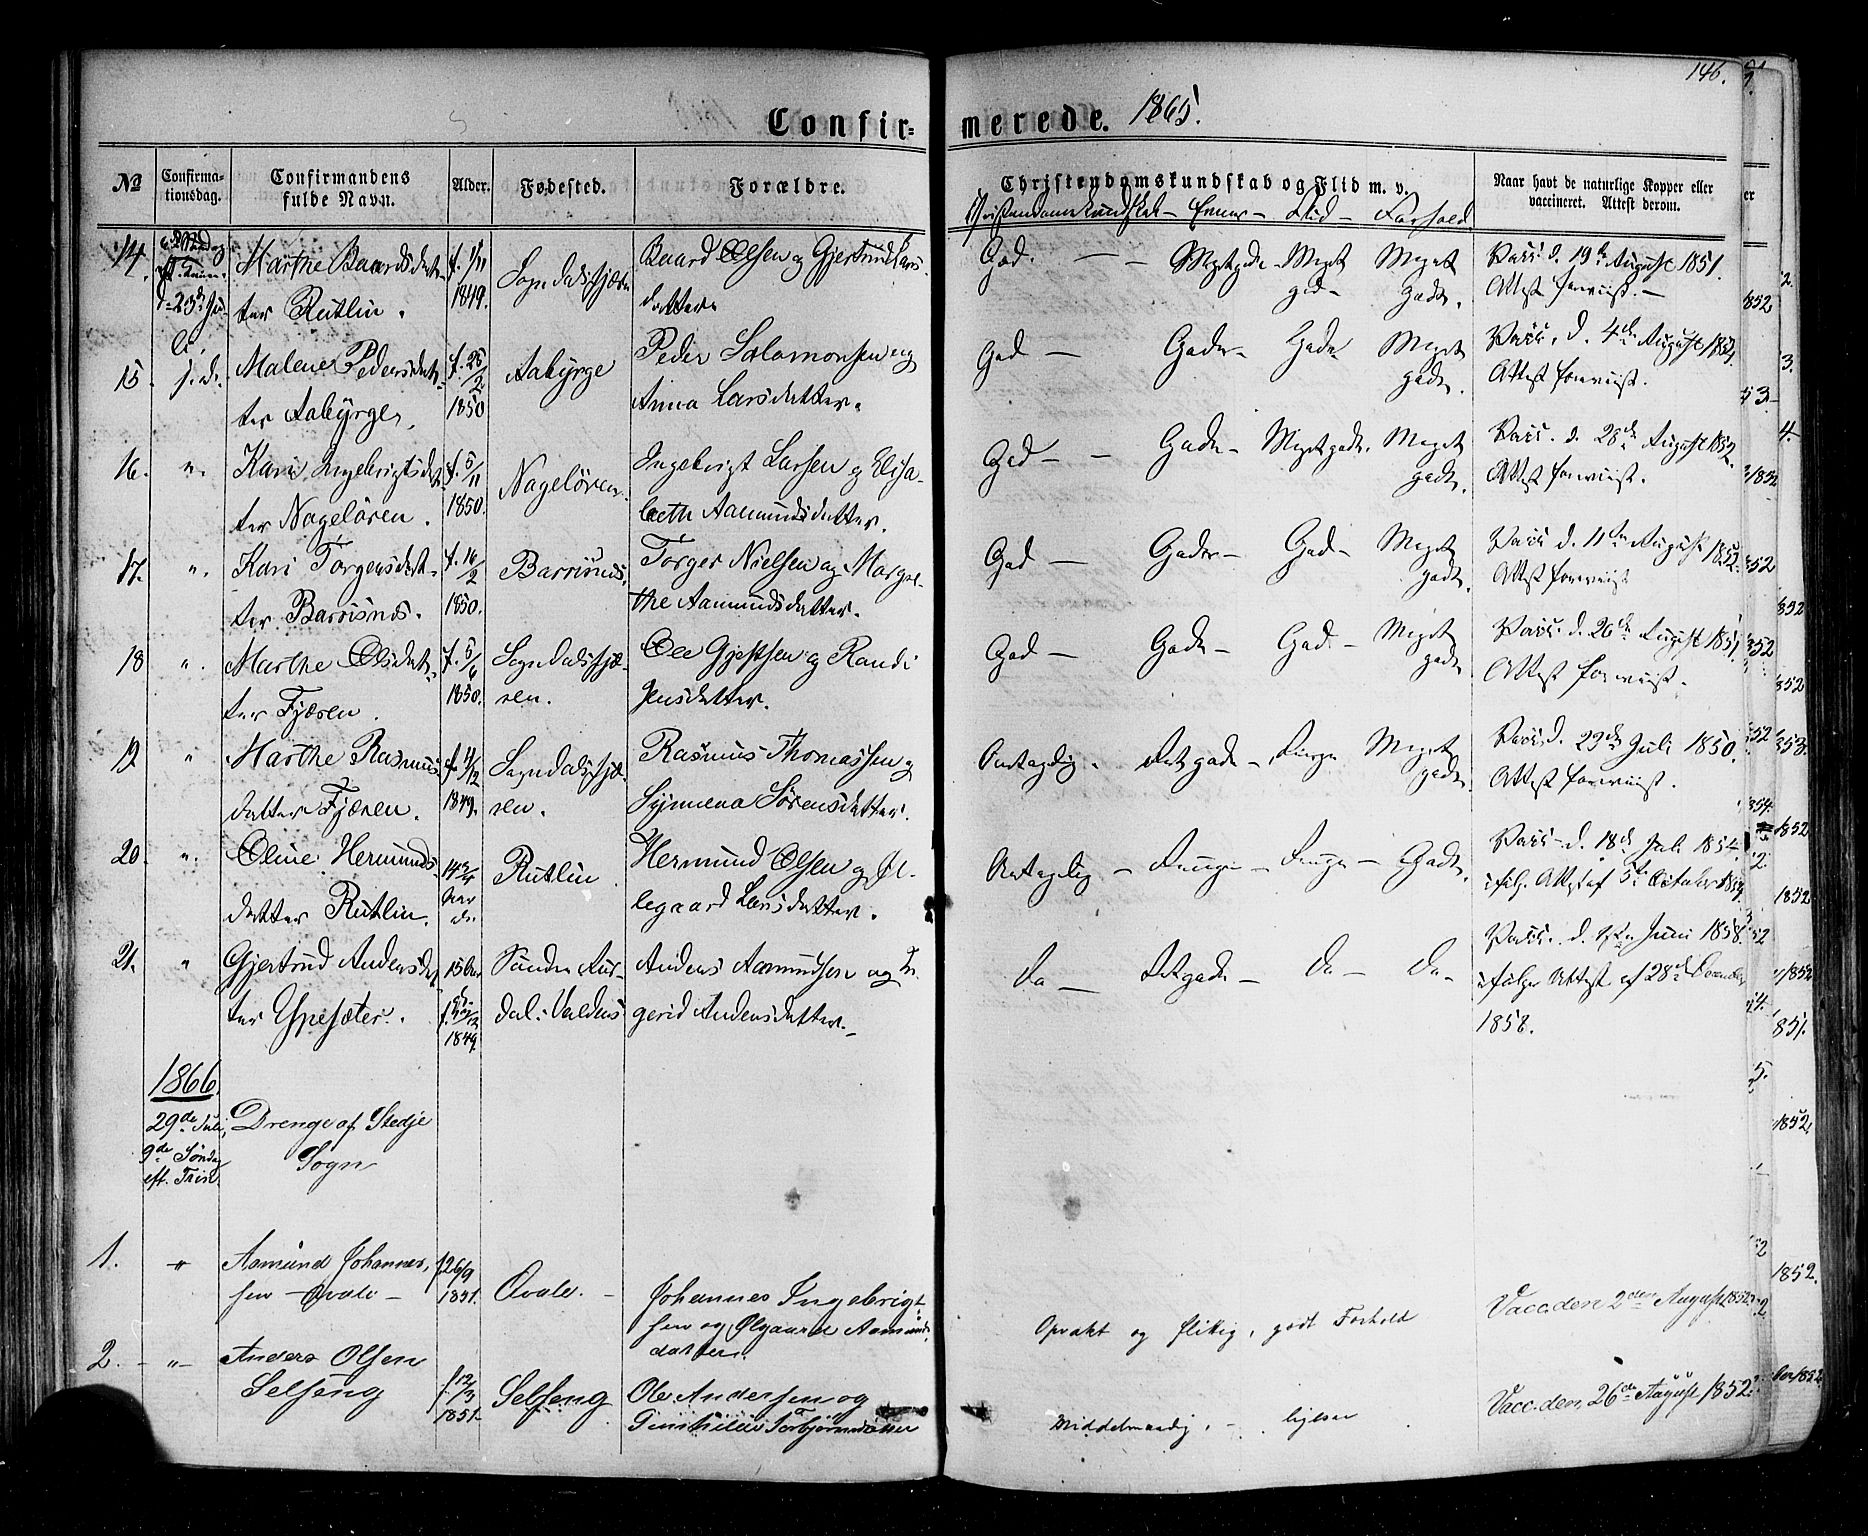 146.
Confirmerede. 1865.
No
Confirmationsdag.
Confirmandens fulde Navn.
Alder.
Fødested.
Forældre.
Christendomskundskab og Flid m. v.
Christendomskundskab – Evner – Flid – Forhold
Naar havt de naturlige Kopper eller vaccineret. Attest derom.
14.
d. 23de Ju-
li,
Marthe Baardsdat-
ter Rutlin.
f. 1/11
1849.
Sogndalsfjæren
Baard Olsen og Gjertrud Lars-
datter
God. – – Megetgode Meget god – Meget godt.
Vacc. d. 19de August 1851.
Attest forevist. –
15.
s. d.
Malene Pedersdat-
ter Aabyrge,
f. 25/2
1850
Aabyrge
Peder Salamonsen og
Anna Larsdatter.
God – Gode – Gode Meget godt.
Vacc. d. 4de August 1852.
Attest forevist.
16.
"
Kari Ingebrigtsdat-
ter Nageløren.
f. 5/11
1850.
Nageløren.
Ingebrigt Larsen og Elisa-
beth Aamundsdatter.
God – – Gode – Meget gode. Meget godt.
Vacc. d. 28de August 1852.
Attest forevist.
17.
"
Kari Torgersdat-
ter Barsnes.
f. 16/2
1850.
Barsnes.
Torger Nielsen og Margre-
the Aamundsdatter.
God – Gode – God – Meget godt.
Vacc. d. 11te August 1852.
Attest forevist
18
"
Marthe Olsdat-
ter Fjæren.
f. 5/6
1850.
Sogndalsfjæ-
ren.
Ole Gjestsen og Randi
Jensdatter.
God – Gode – God – Meget godt
Vacc. d. 26de August 1851.
Attest forevist.
19
"
Marthe Rasmus-
datter Fjæren.
f. 11/12
1849.
Sogndalsfjæ-
ren.
Rasmus Thomassen og
Synneva Sørensdatter.
Antagelig. Ret gode – Ringe Meget godt.
Vacc. d. 29de Juli 1850.
Attest forevist.
20.
"
Oline Hermunds-
datter Rutlin.
14 3/4
Rutlin.
Hermund Olsen og Øl-
legaard Larsdatter.
Antagelig – Ringe – Ringe – Godt.
Vacc. d. 18de Juli 1854
ifølge Attest af 5te October
21.
"
Gjertrud Andersdat-
ter Ypesæter.
15
1849.
Søndre Aur-
dal. Valders
Anders Aamundsen og In-
gerid Andersdatter. –
Do – Ret gode – Do – Do –
Vacc. d. Juni 1858.
ifølge Attest af 28de December
1858.
1866.
29de Juli,
9de Søndag
eft. Trin.
Drenge af Stedje
Sogn
1.
"
Aamund Johannes-
sen – Qvale –
f. 26/9
1851.
Qvale. –
Johannes Ingebrigt-
sen og Ølgaard Aamunds-
datter.
Opvakt og flittig, godt Forhold
Vacc. den 2den August 1852.
2. –
"
Anders Olsen
Selseng
f. 12/3
1851
Selseng
Ole Andersen og
Torbjørnsdatter
Middelmaadig. – . ligesaa
Vacc. den 26de August 1852.